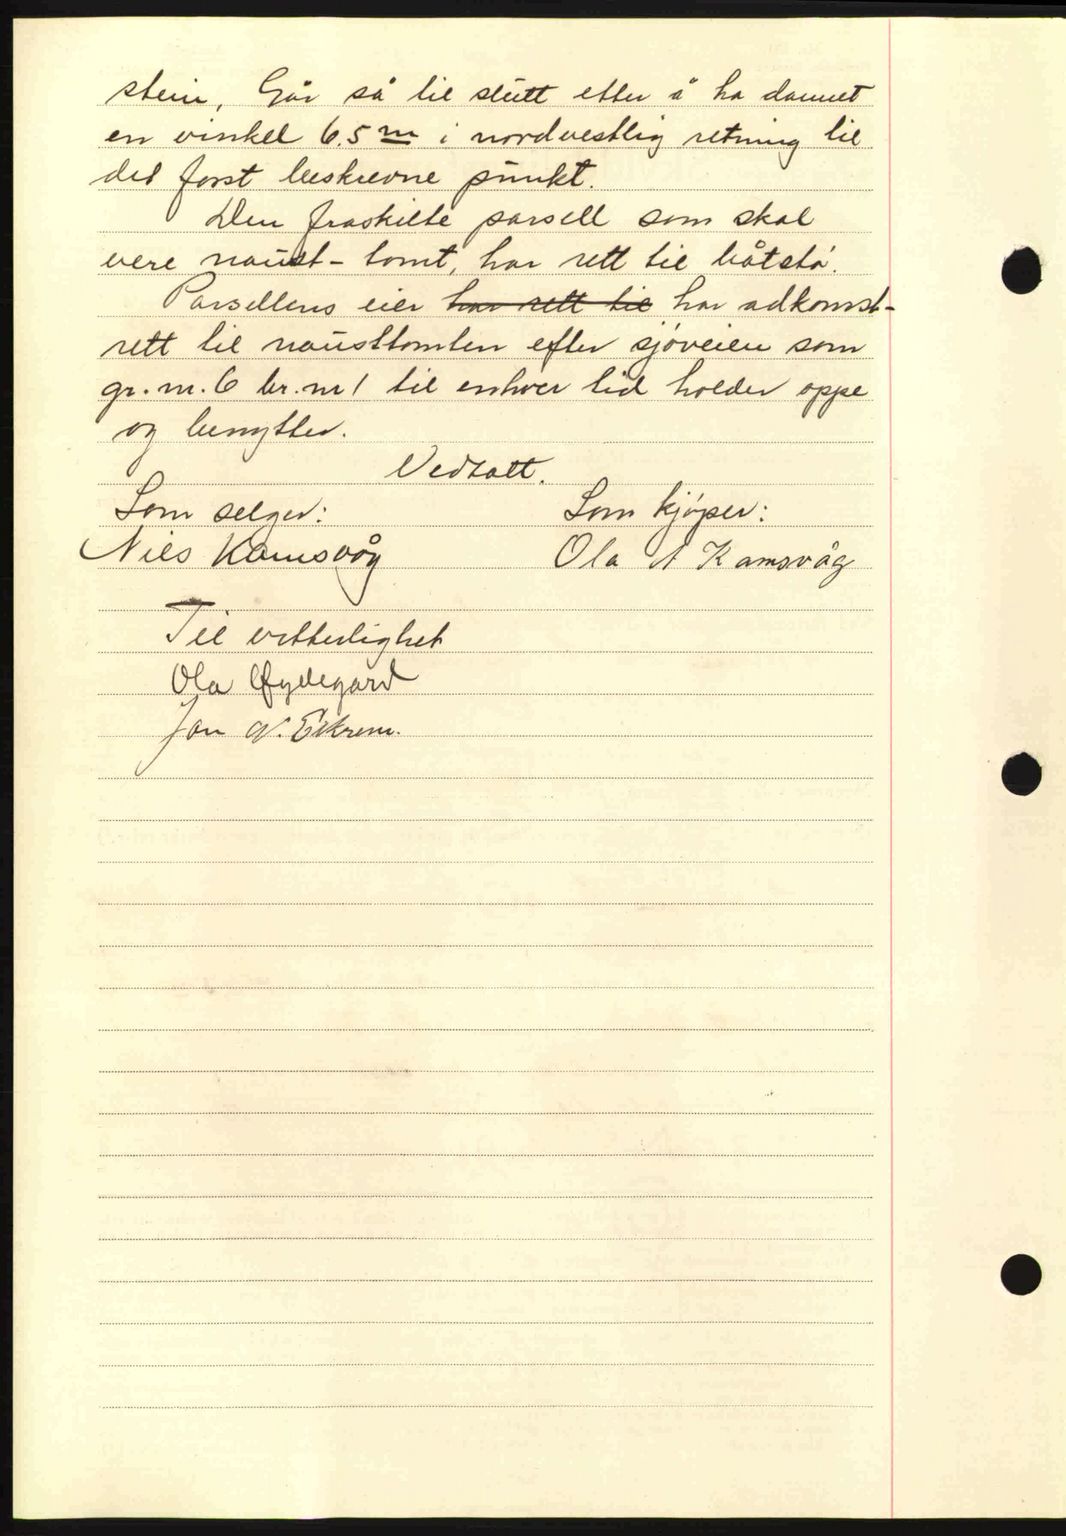 stein, Går så til slutt etter å ha dannet
en vinkel 6.5 m i nordvestlig retning til
det først beskrevne punkt.
Den fraskilte parsell som skal
vere naust-tomt, har rett til båtstø.
Parsellens eier har rett til har adkomst-
rett til nausttomten efter sjøveien som
gr. nr. 6 br. nr 1 til enhver tid holder oppe
og benytter.
Vedtatt.
Som selger: Som kjøper:
Nils Kamsvåg Ola A Kamsvåg
Til vitterlighet
Ola Øydegard
Jon N. Eikrem.